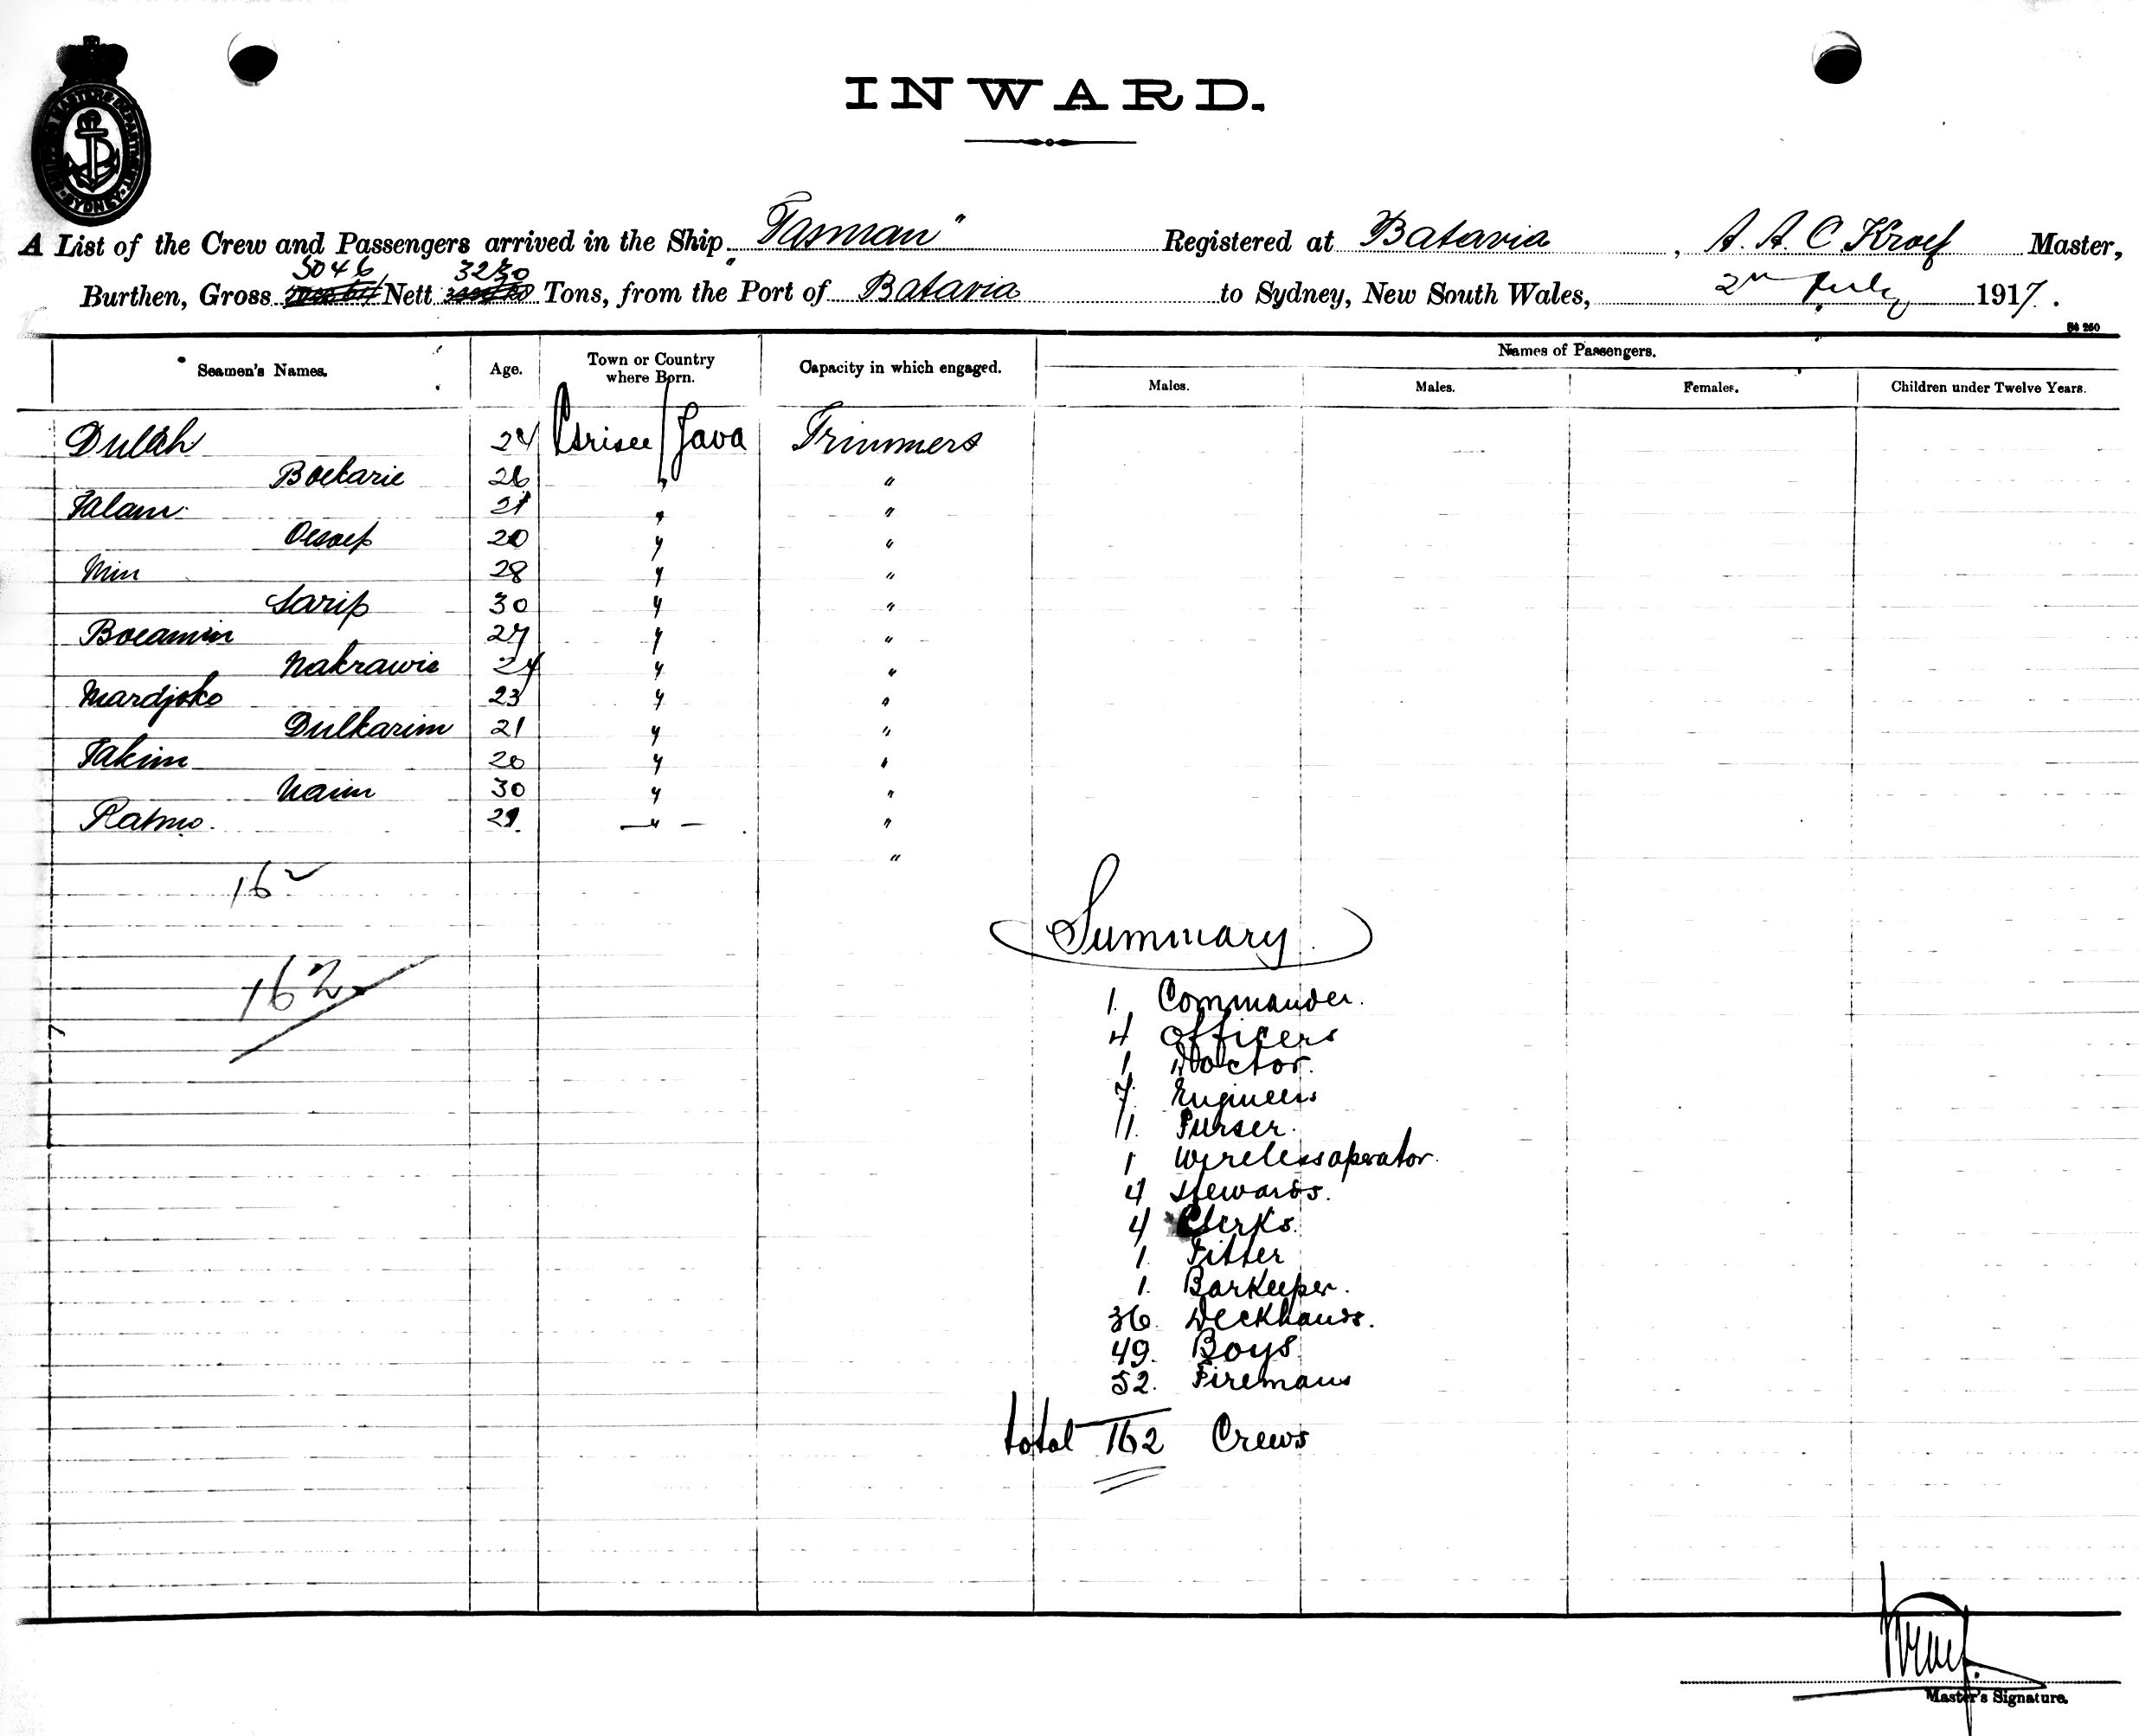 INWARD.
SYDNEY
A List of the Crew and Passengers arrived in the Ship "Tasman" Registered at Batavia, A. A. C. Kroef Master,
5046 3230
Burthen, Gross Nett Tons, from the Port of Batavia to Sydney, New South Wales, 2nd July 1917.
84 250
Seamen's Names. Age. Town or Country where Born. Capacity in which engaged. Names of Passengers.
Males. Males. Females. Children under Twelve Years.
Dulah 24 Grisee / Java Trimmers
Boekarie 26 " "
Salam 21 " "
Oesoep 20 " "
Min 28 " "
Sarip 30 " "
Boeamin 27 " "
Nakrawie 24 " "
Mardjoko 23 " "
Dulkarim 21 " "
Takim 20 " "
Naim 30 " "
Ratmo. 29 — " — "
"
162
162
Summary
1. Commander.
4 Officers
1 Doctor.
7. Engineers
1. Purser.
1 Wirelessoperator.
4 Stewards.
4 Clerks.
1. Fitter
1. Barkeeper.
36. Deckhands.
49. Boys.
52. Firemans
total 162 Crews
Kroef.
Master's Signature.